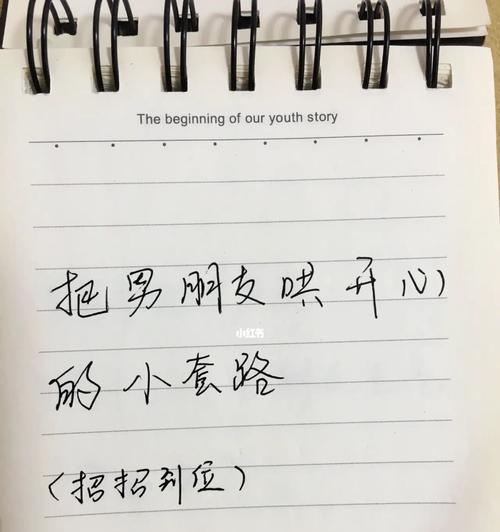 The beginning of our youth story
把男朋友哄开心
小红书
的小套路
(招招到位)